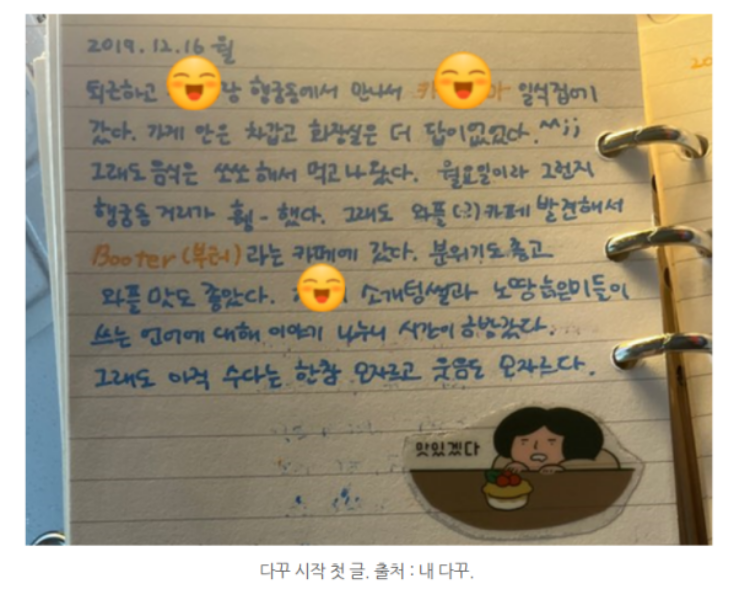 2019.12.16 월
퇴근하고 랑 행궁동에서 만나서 카 마 일식집에
갔다. 가게 안은 차갑고 화장실은 더 답이 없었다.^^;;
그래도 음식은 쏘쏘해서 먹고 나왔다. 월요일이라 그런지
행궁동 거리가 휑-했다. 그래도 와플(크)카페 발견해서
Booter(부터)라는 카페에 갔다. 분위기도 좋고
와플 맛도 좋았다. 소개팅썰과 노땅 늙은미들이
쓰는 언어에 대해 이야기 나누니 시간이 후딱갔다.
그래도 아직 수다는 한참 모자르고 웃음도 모자르다.
맛있겠다
다꾸 시작 첫 글. 출처 : 내 다꾸.